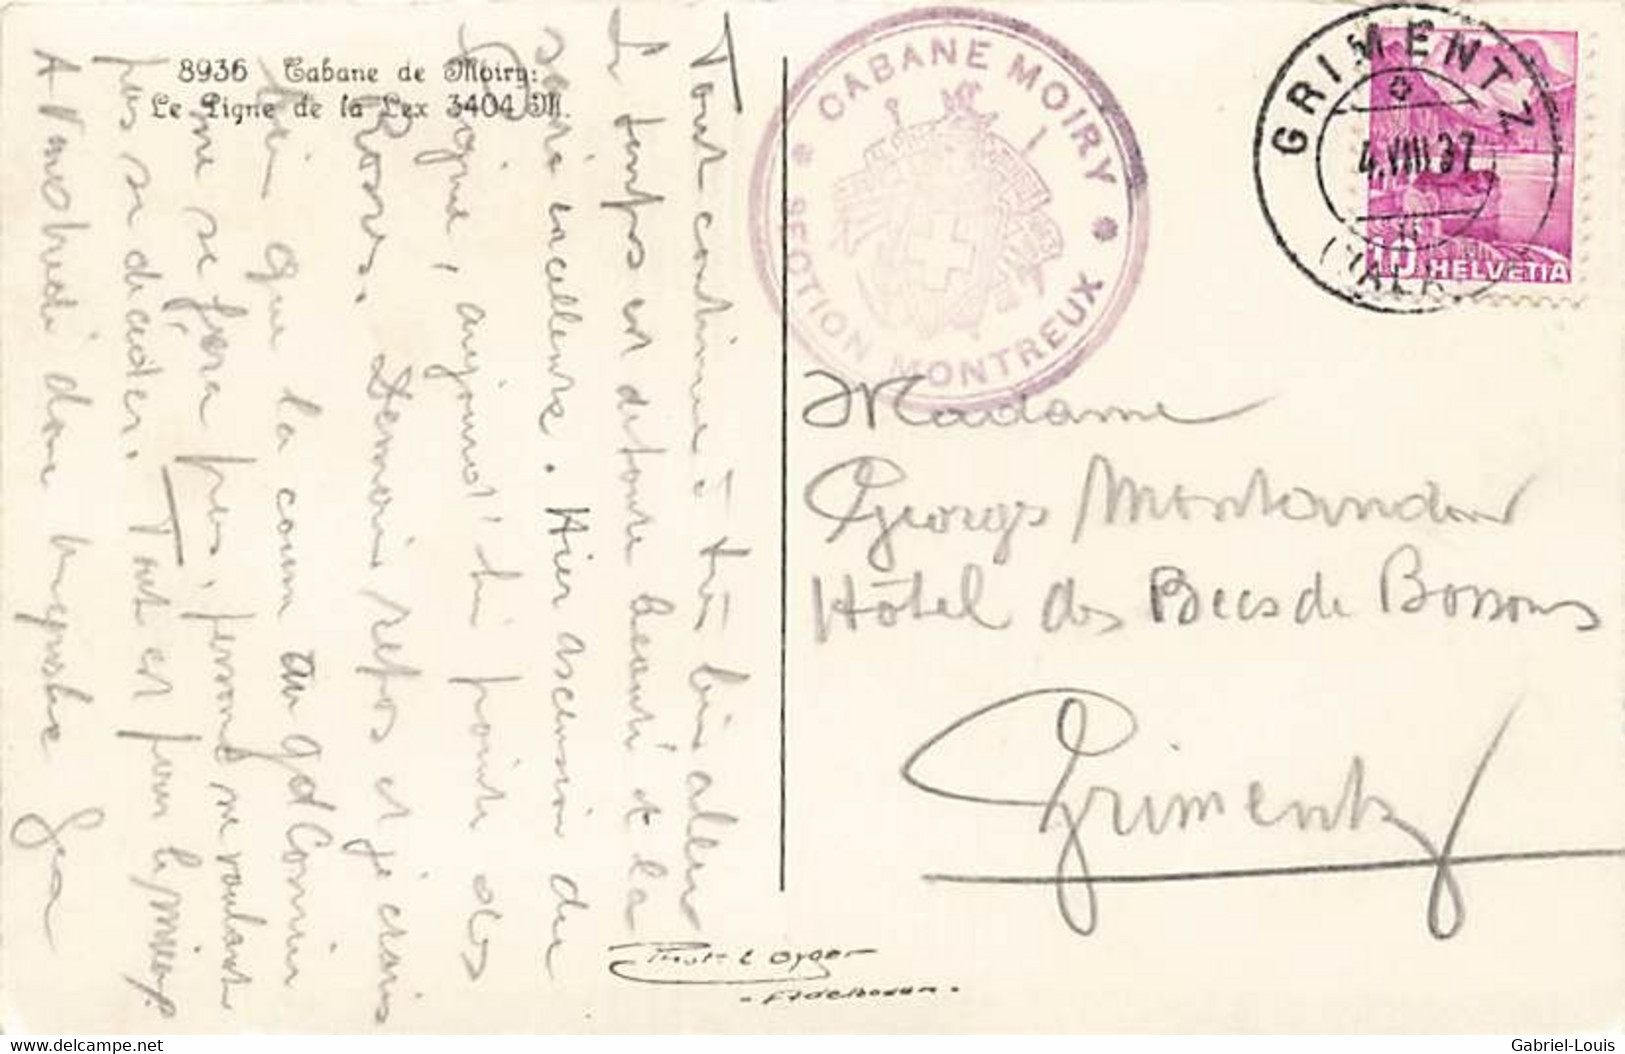 8936 Cabane de Moiry:
Le Pigne de la Lex 3404 M.
Tout continue à très bien aller
le temps est de toute beauté et la
série excellente. Hier ascension du
Pigne, aujourd'hui pointe des
Rosses. Demain repos et je crains
bien que la course au Gd Cornier
ne se fera pas, personne ne voulant
pas se décider. Tout est pour le mieux
A Vendredi donc
CABANE MOIRY
SECTION MONTREUX
GRIMENTZ
4.VIII.37
10 HELVETIA
Madame
Georges Montandon
Hôtel des Becs de Bossons
Grimentz
- Adelboden -
www.delcampe.net
Gabriel-Louis